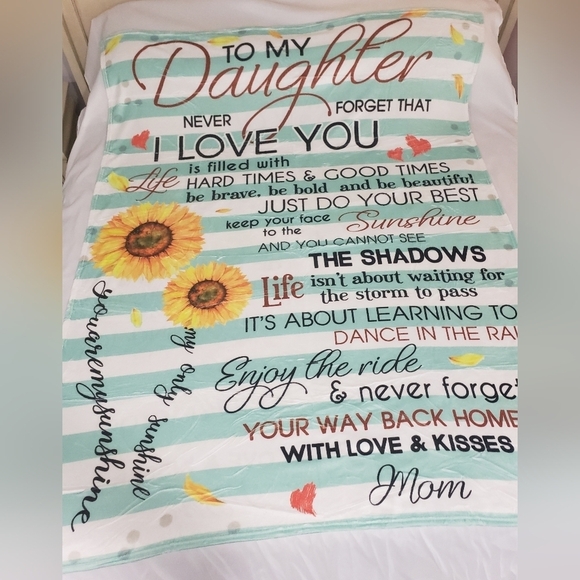 TO MY
Daughter
NEVER FORGET THAT
I LOVE YOU
Life is filled with
HARD TIMES & GOOD TIMES
be brave. be bold and be beautiful
JUST DO YOUR BEST
keep your face
to the Sunshine
AND YOU CANNOT SEE
THE SHADOWS
Life isn't about waiting for
the storm to pass
IT'S ABOUT LEARNING TO
DANCE IN THE RAI
Enjoy the ride
& never forget
YOUR WAY BACK HOME
WITH LOVE & KISSES
Mom
youaremysunshine
my only sunshine